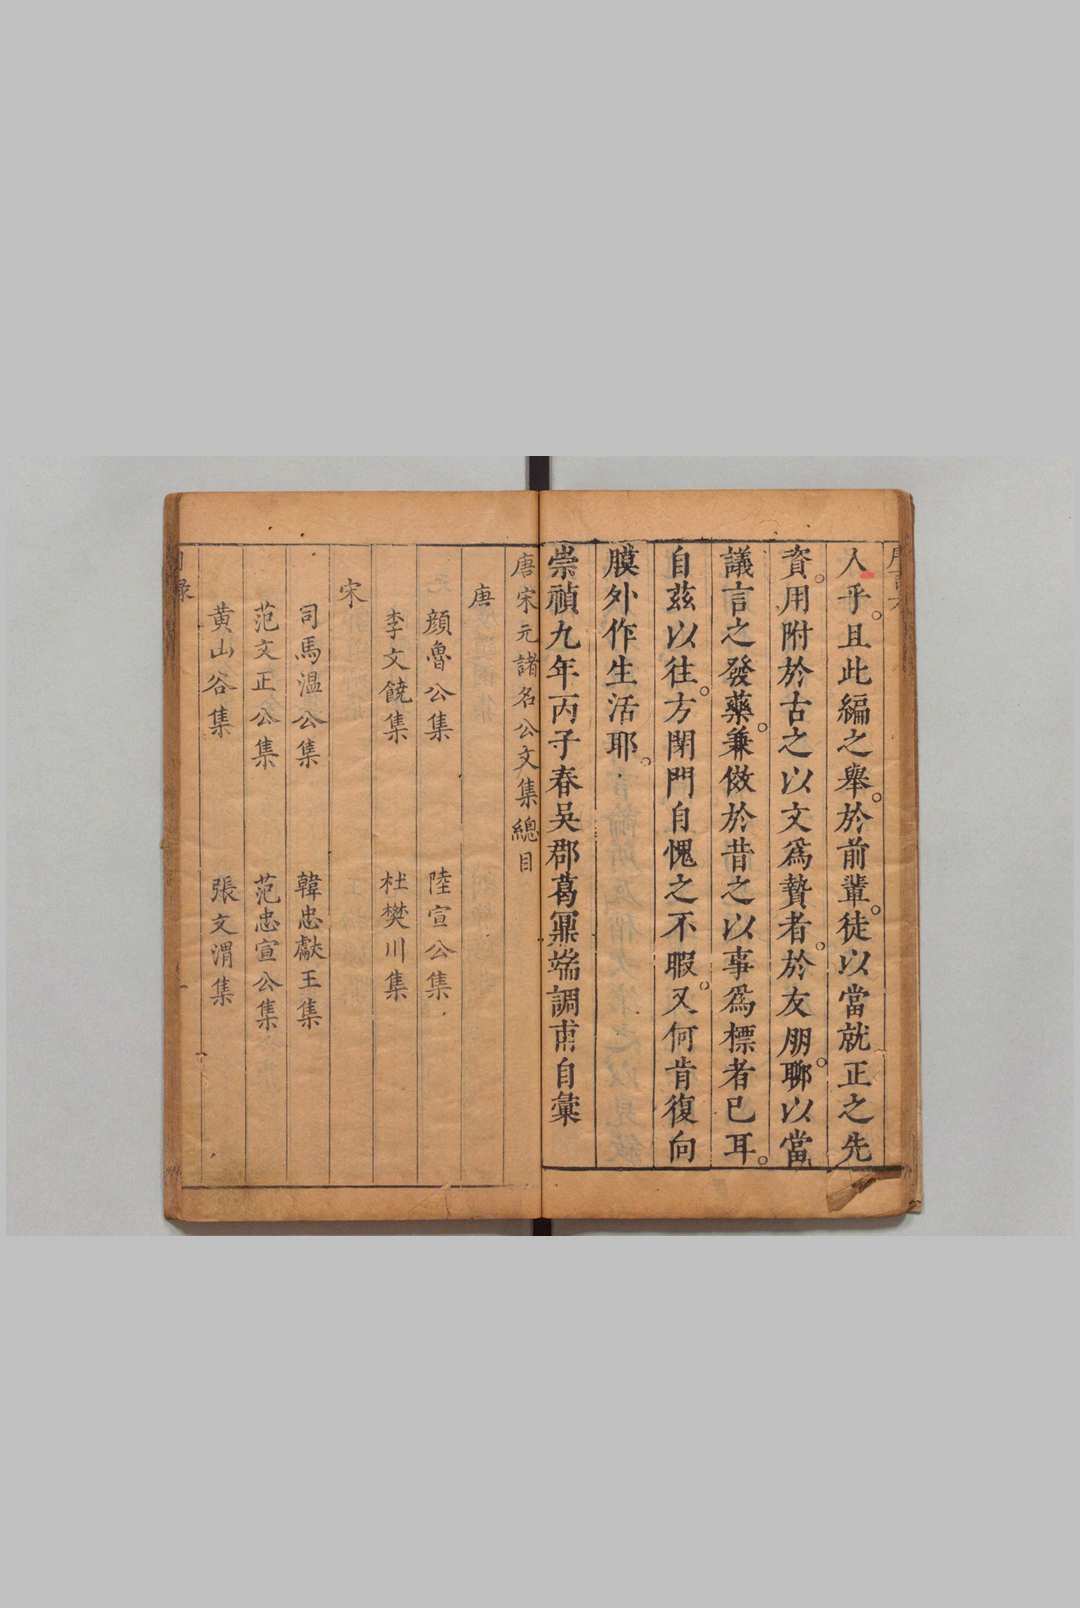 人乎且此編之舉於前輩徒以當就正之先
資用附於古之以文爲贄者於友朋聊以當
議言之發藥兼倣於昔之以事爲標者已耳
自茲以往方閉門自愧之不暇又何肯復向
膜外作生活耶
崇禎九年丙子春吳郡葛鼏端調甫自彙
唐宋元諸名公文集總目
唐
顔魯公集 陸宣公集
李文饒集 杜樊川集
宋
司馬温公集 韓忠獻王集
范文正公集 范忠宣公集
黄山谷集 張文潛集